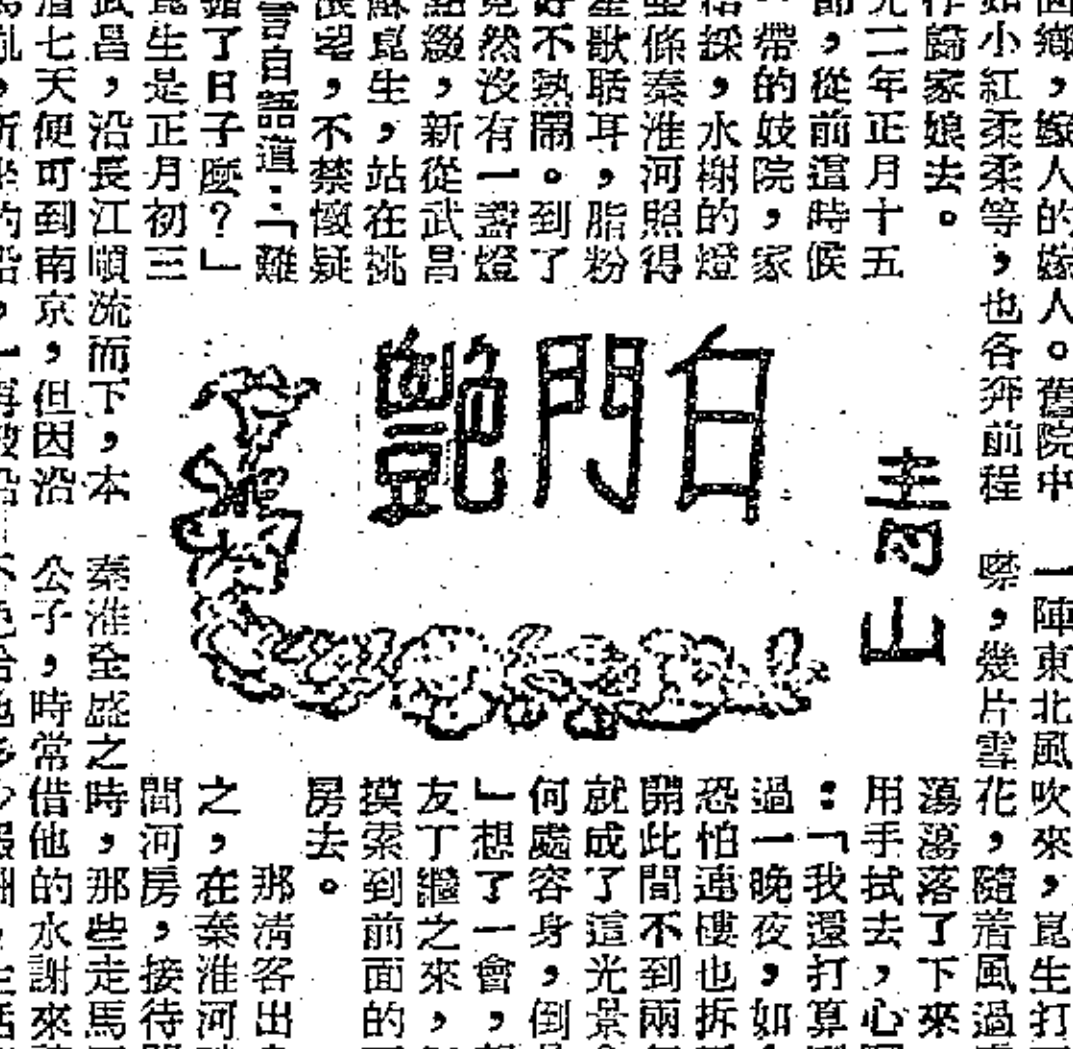 鄉，嫁人的嫁人。舊院中
如小紅柔柔等，也各奔前程
作歸家娘去。
光二年正月十五
節，從前這時候
帶的妓院，家
結綵，水榭的燈
整條秦淮河照得
笙歌聒耳，脂粉
好不熱鬧。到了
竟然沒有一盞燈
點綴，新從武昌
蘇崑生，站在挑
張望，不禁懷疑
言自語道：「難
錯了日子麼？」
崑生是正月初三
武昌，沿長江順流而下，本
七天便可到南京，但因沿
白門艷
青山
一陣東北風吹來，崑生打
，幾片雪花，隨着風過
蕩蕩落了下來
用手拭去，心
：「我還打算
過一晚夜，如
恐怕連樓也拆
開此間不到兩
就成了這光景
何處容身，倒
」想了一會，
友丁繼之來，
摸索到前面的
房去。
那清客出
之，在秦淮河
間河房，接待
秦淮全盛之時，那些走馬
公子，時常借他的水謝來